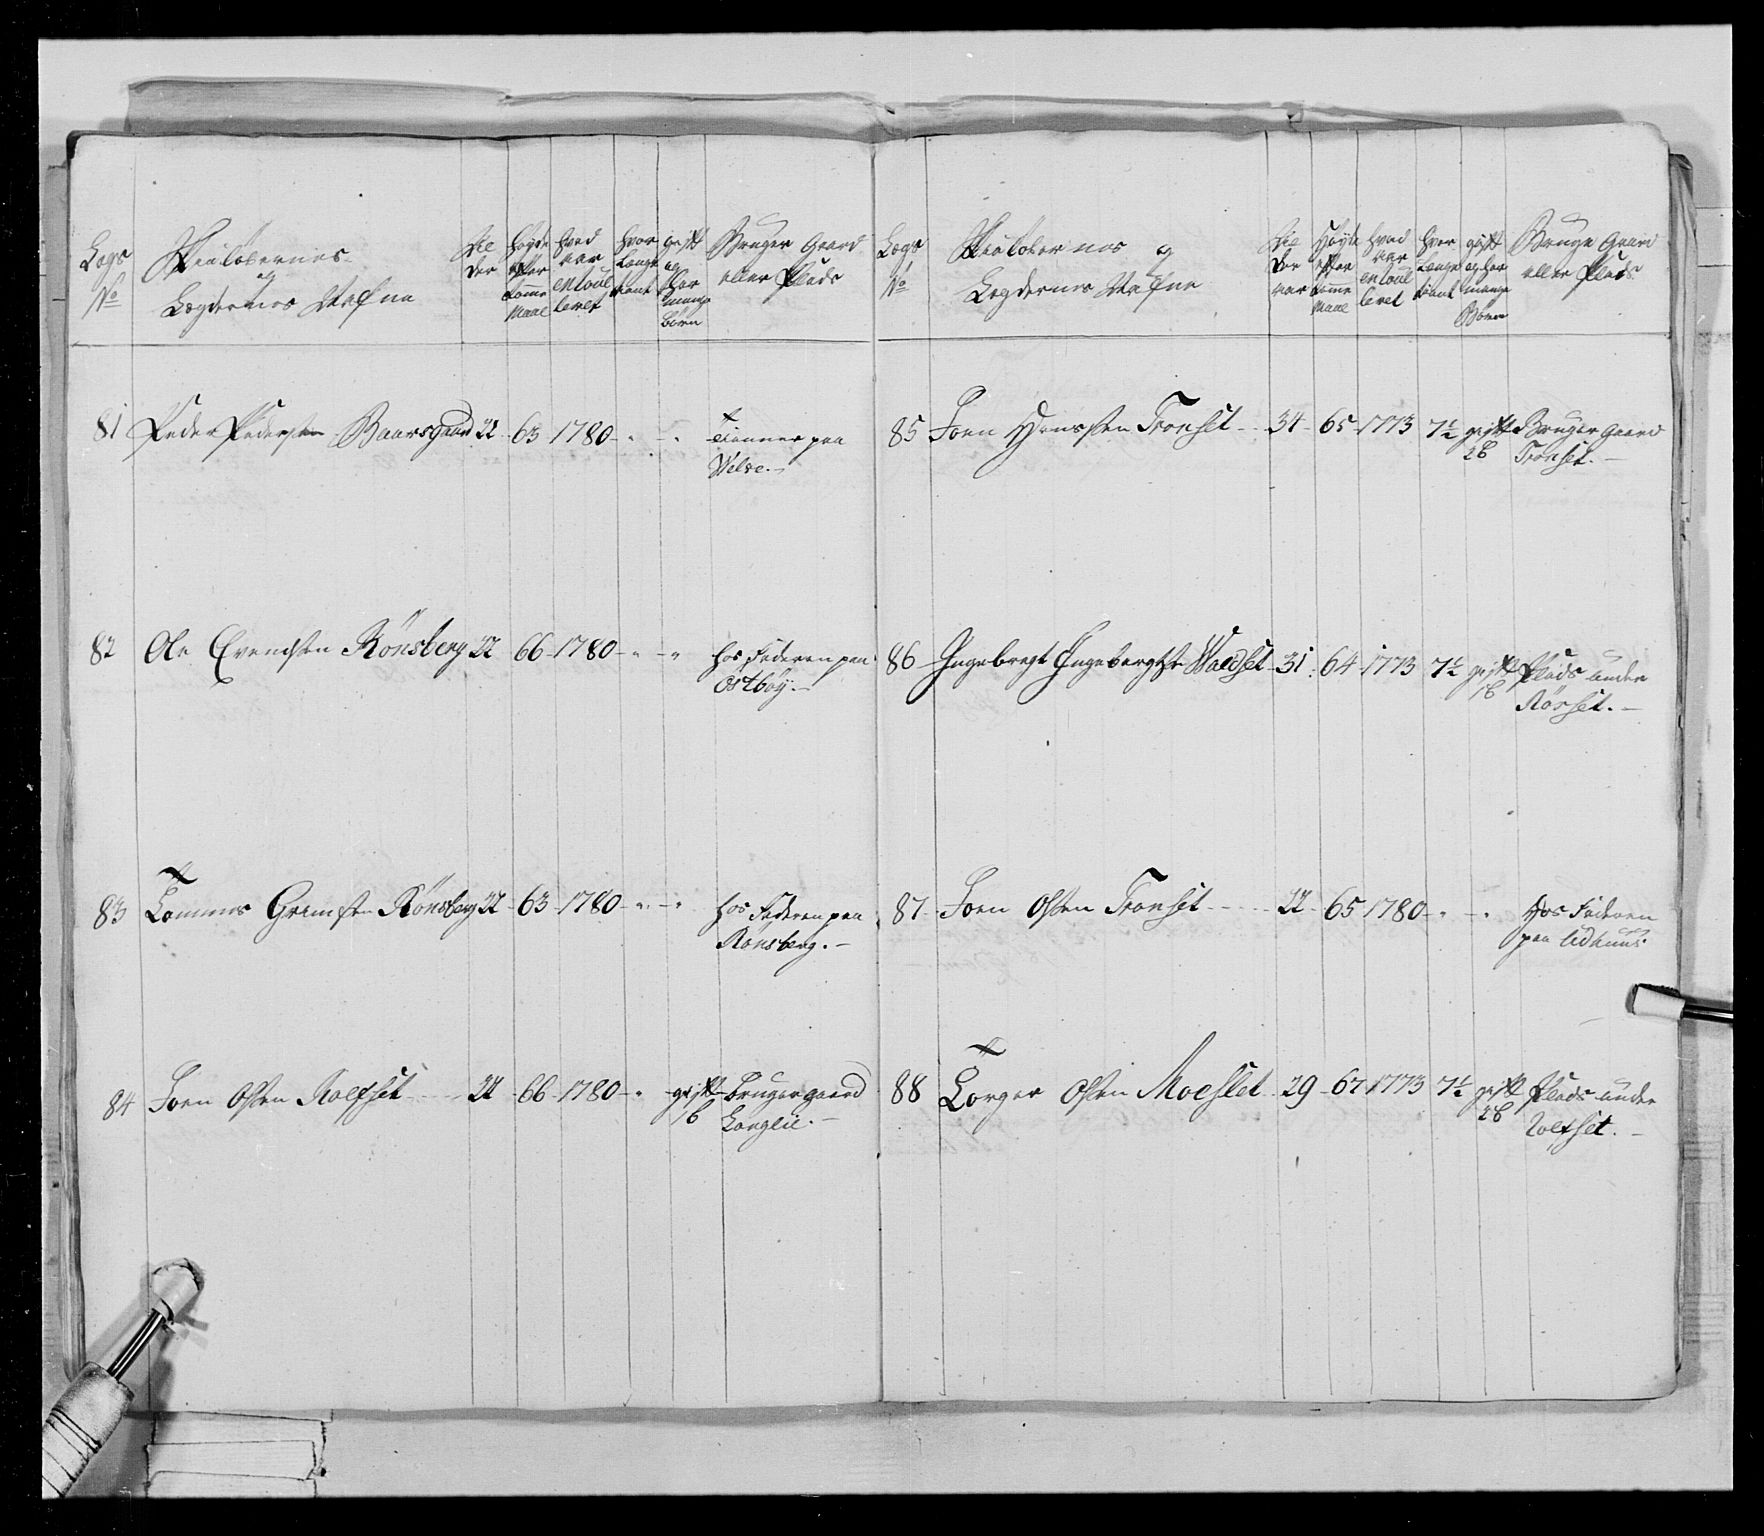 Legs No
Skiløbernes og Legdernes Nafne
Alder
Høyde efter Tomme Maal
hvad aar enroulleret
hvor Lenge tient
gift og har mange børn
Bruger Gaard eller Plads
81 Peder Pedersen Baarsgaard 22 - 63 - 1780 - " - " Tienner paa
Welve. -
82 Ole Evendsen Rönsberg 22 66 - 1780 - " - " hos Faderen paa
Ostbøy. -
83 Tommes Grimsen Rönsberg 22 - 63 - 1780 - " - " hos Faderen paa
Ronsberg. -
84 Joen Olsen Rolfset 22 - 66 - 1780 - " - gift Bruger gaard
1 B Langlie. -
Legs No
Skiløbernes og Legdernes Nafne
Alder
Høyde efter Tomme Maal
hvad aar enroulleret
hvor Længe tient
gift og har mange Børn
Bruge Gaard eller Plads
85 Joen Hansen Tronset 34 - 65 - 1773 7½ gift Bruger Gaard
2 B Tronset. -
86 Ingebregt Ingebregtse Waldset 31 64 - 1773 7½ gift Plads under
1 B Rørset. -
87 Joen Olsen Tronset 22 - 65 1780 - " - " Hos Faderen
paa Udhuus.
88 Torger Olsen Moeslet 29 - 67 1773 7½ gift Plads under
2 B Rolfset. -